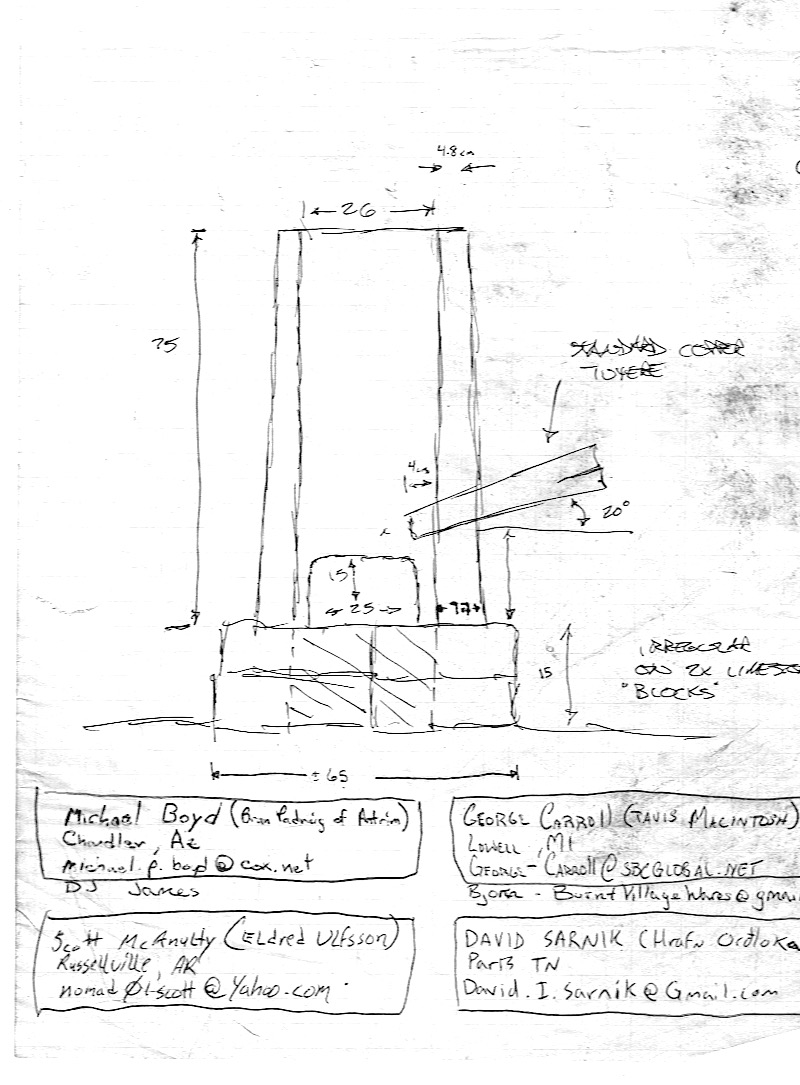 4.8cm
26
75
STANDARD COPPER
TUYERE
4cm
20°
15
25
IRREGULAR
ON 2X
"BLOCKS"
15
±65
Michael Boyd (Bran Padraig of Antrim)
Chandler, Az
michael.p.boyd@cox.net
DJ James
GEORGE CARROLL (TAVIS MACINTOSH)
LOWELL, MI
GEORGE-CARROLL@SBCGLOBAL.NET
Bjorn - BurntVillageWares@gmai
Scott McAnulty (Eldred Ulfsson)
Russellville, AR
@Yahoo.com
DAVID SARNIK (Hrafn
Paris TN
David.I.Sarnik@Gmail.com